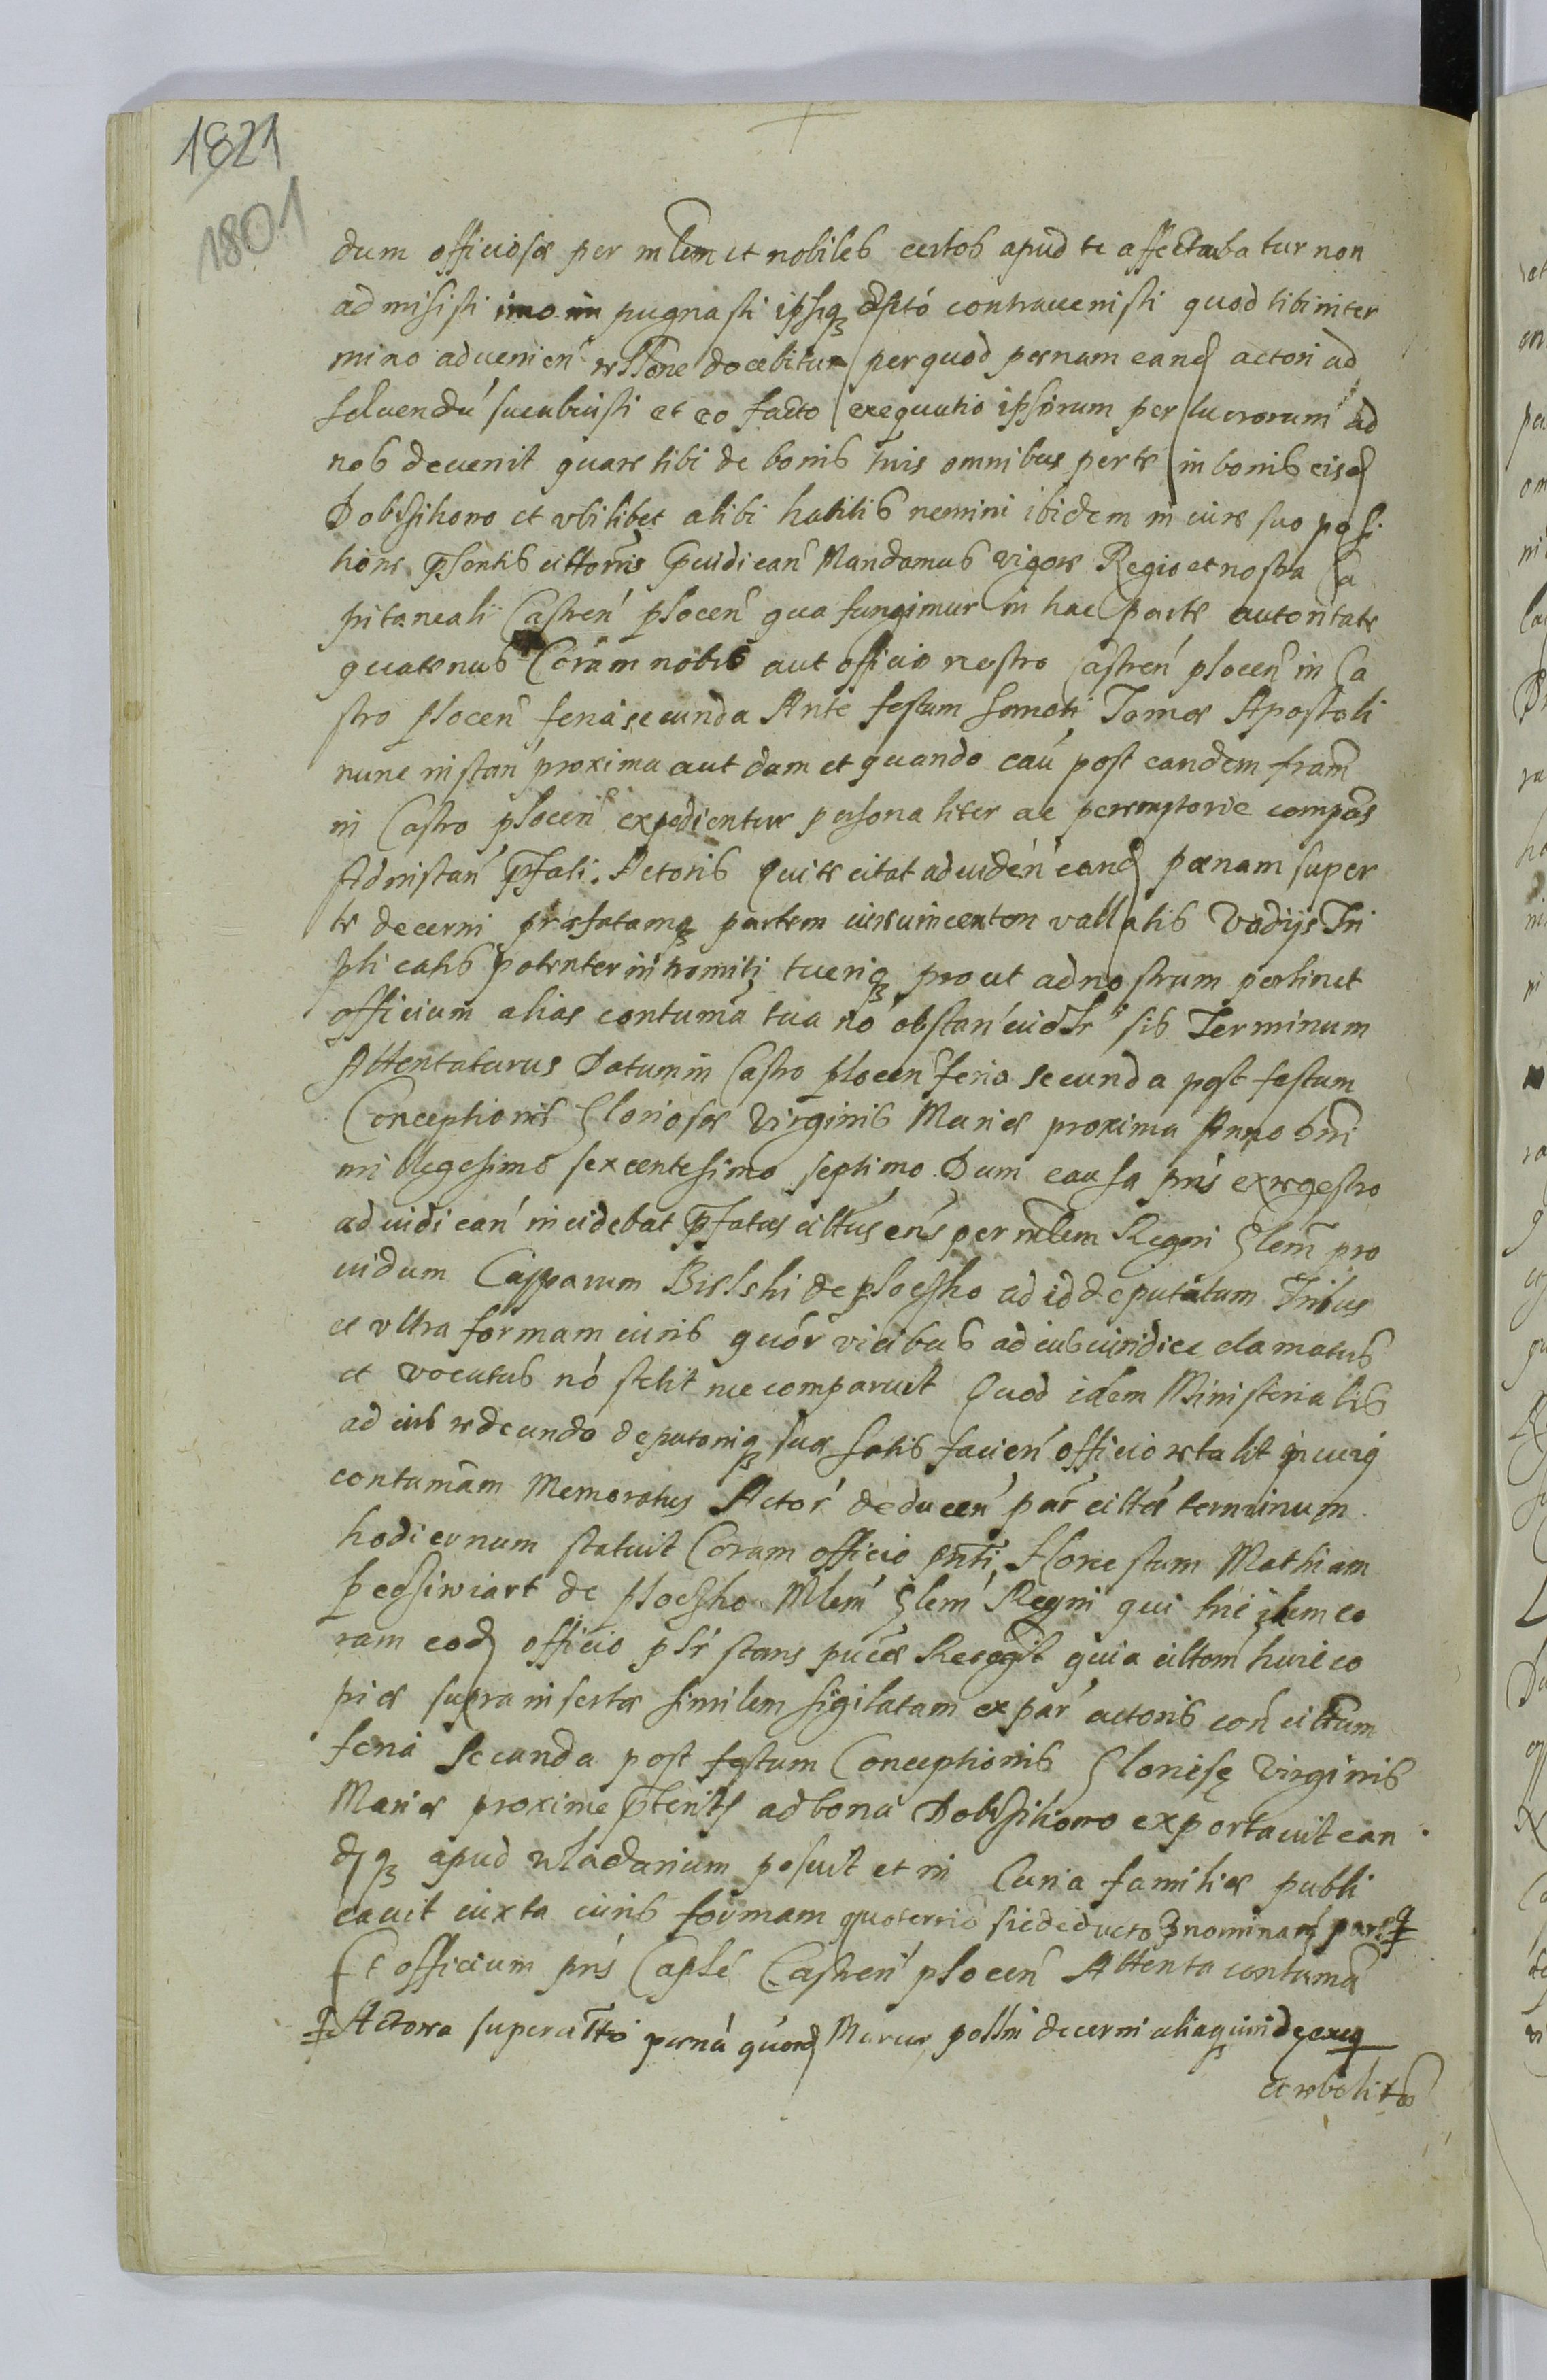 1821
1801
dum officiosæ per mlem et nobiles certos apud te affectabatur non
admisisti imo im pugnasti ipsiq₃ contravenisti quod tibi in ter
mino advenien docebitur per quod pœnam eand actori ad
solvendú succubuisti et eo facto exequutio ipsorum per lucrorum ad
nos devenit quare tibi de bonis tuis omnibus per te in bonis eisd
Dobrsikowo et vbilibet alibi habitis nemini ibidem in iure suo posi
tione pñtis citto͂ris preiudican Mandamus vigore Regio et nostra Ca
pitaneali Castren plocen qua fungimur in hac parte autoritate
quatenus Coram nobis aut officio nostro Castren plocen in Ca
stro plocen feria secunda Ante festum Sancti Tomæ Apostoli
nunc instan proxima aut dum et quando cau post eandem fram
in Castro plocen expedientur personaliter ac peremptorie compas
Ad instan Actoris Qui te citat ad viden eand pœnam super
te decerni præfatamq₃ partem iure vincentem vallatis Vadijs Tri
plicatis potenter intromitti tueriq₃ prout ad nostrum pertinet
officium alias contuma tua nó obstan sis Terminum
Attentaturus Datum in Castro plocen feria secunda post festum
Conceptionis Gloriosæ Virginis Mariæ proxima Anno dni
millegesimo sexcentesimo septimo. Dum causa pns ex regestro
adiudican incidebat pfatus cittus ens per mlem Regni Glem pro
vidum Casparum Bielski de ploczko ad id deputatum Tribus
et vltra formam iuris quór vicibus ad ius iuridice clamatus
et vocatus nó stetit nec comparuit Quod idem Ministerialis
ad ius reddeundo deputoniq₃ suæ satis facien officio retulit in cuiq
contumam Memoratus Actor deducen par cittá terminum
hodiernum statuit Coram officio pnti Honestum Mathiam
de ploczko Mlem Glem Regni qui hic item co
ram eod officio plr stans Recogt quia cittom huic co
piæ supra insertæ similem sigilatam ex par actoris con cittum
feria Secunda post festum Conceptionis Gloriosę Virginis
Mariæ proxime pterits ad bona Dobrsikowo exportavit ean
dq₃ apud wladarium posuit et in Curia familiæ publi
cavit iuxta iuris formam quo sic deducto
Et officium pns Caple Castren plocen Attenta contuma
Actorea super citto pœná quand Marcar pollni decerni